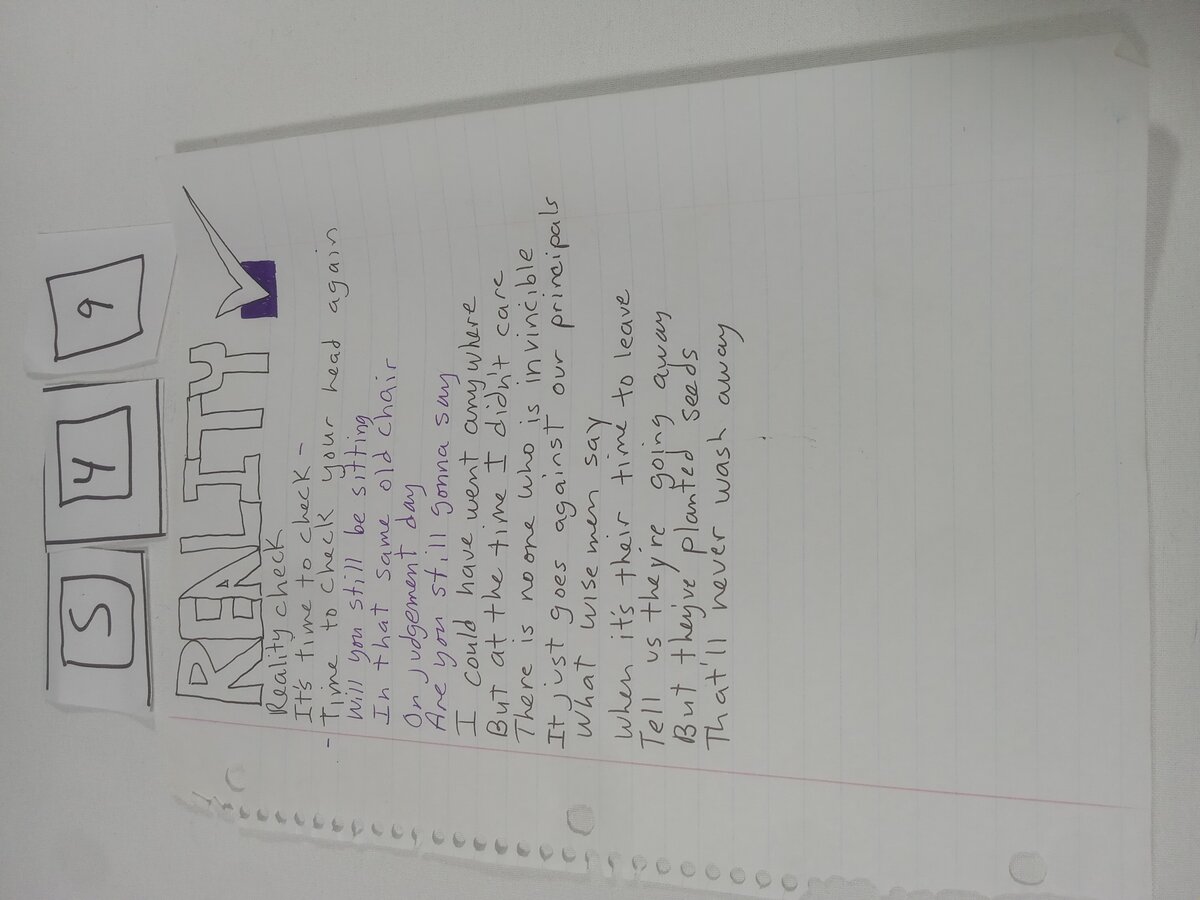 5 4 9
REALITY
Reality check
It's time to check -
- time to check your head again
Will you still be sitting
In that same old chair
On judgement day
Are you still gonna say
I could have went anywhere
But at the time I didn't care
There is no one who is invincible
It just goes against our principals
What wise men say
When it's their time to leave
Tell us they're going away
But they've planted seeds
That'll never wash away